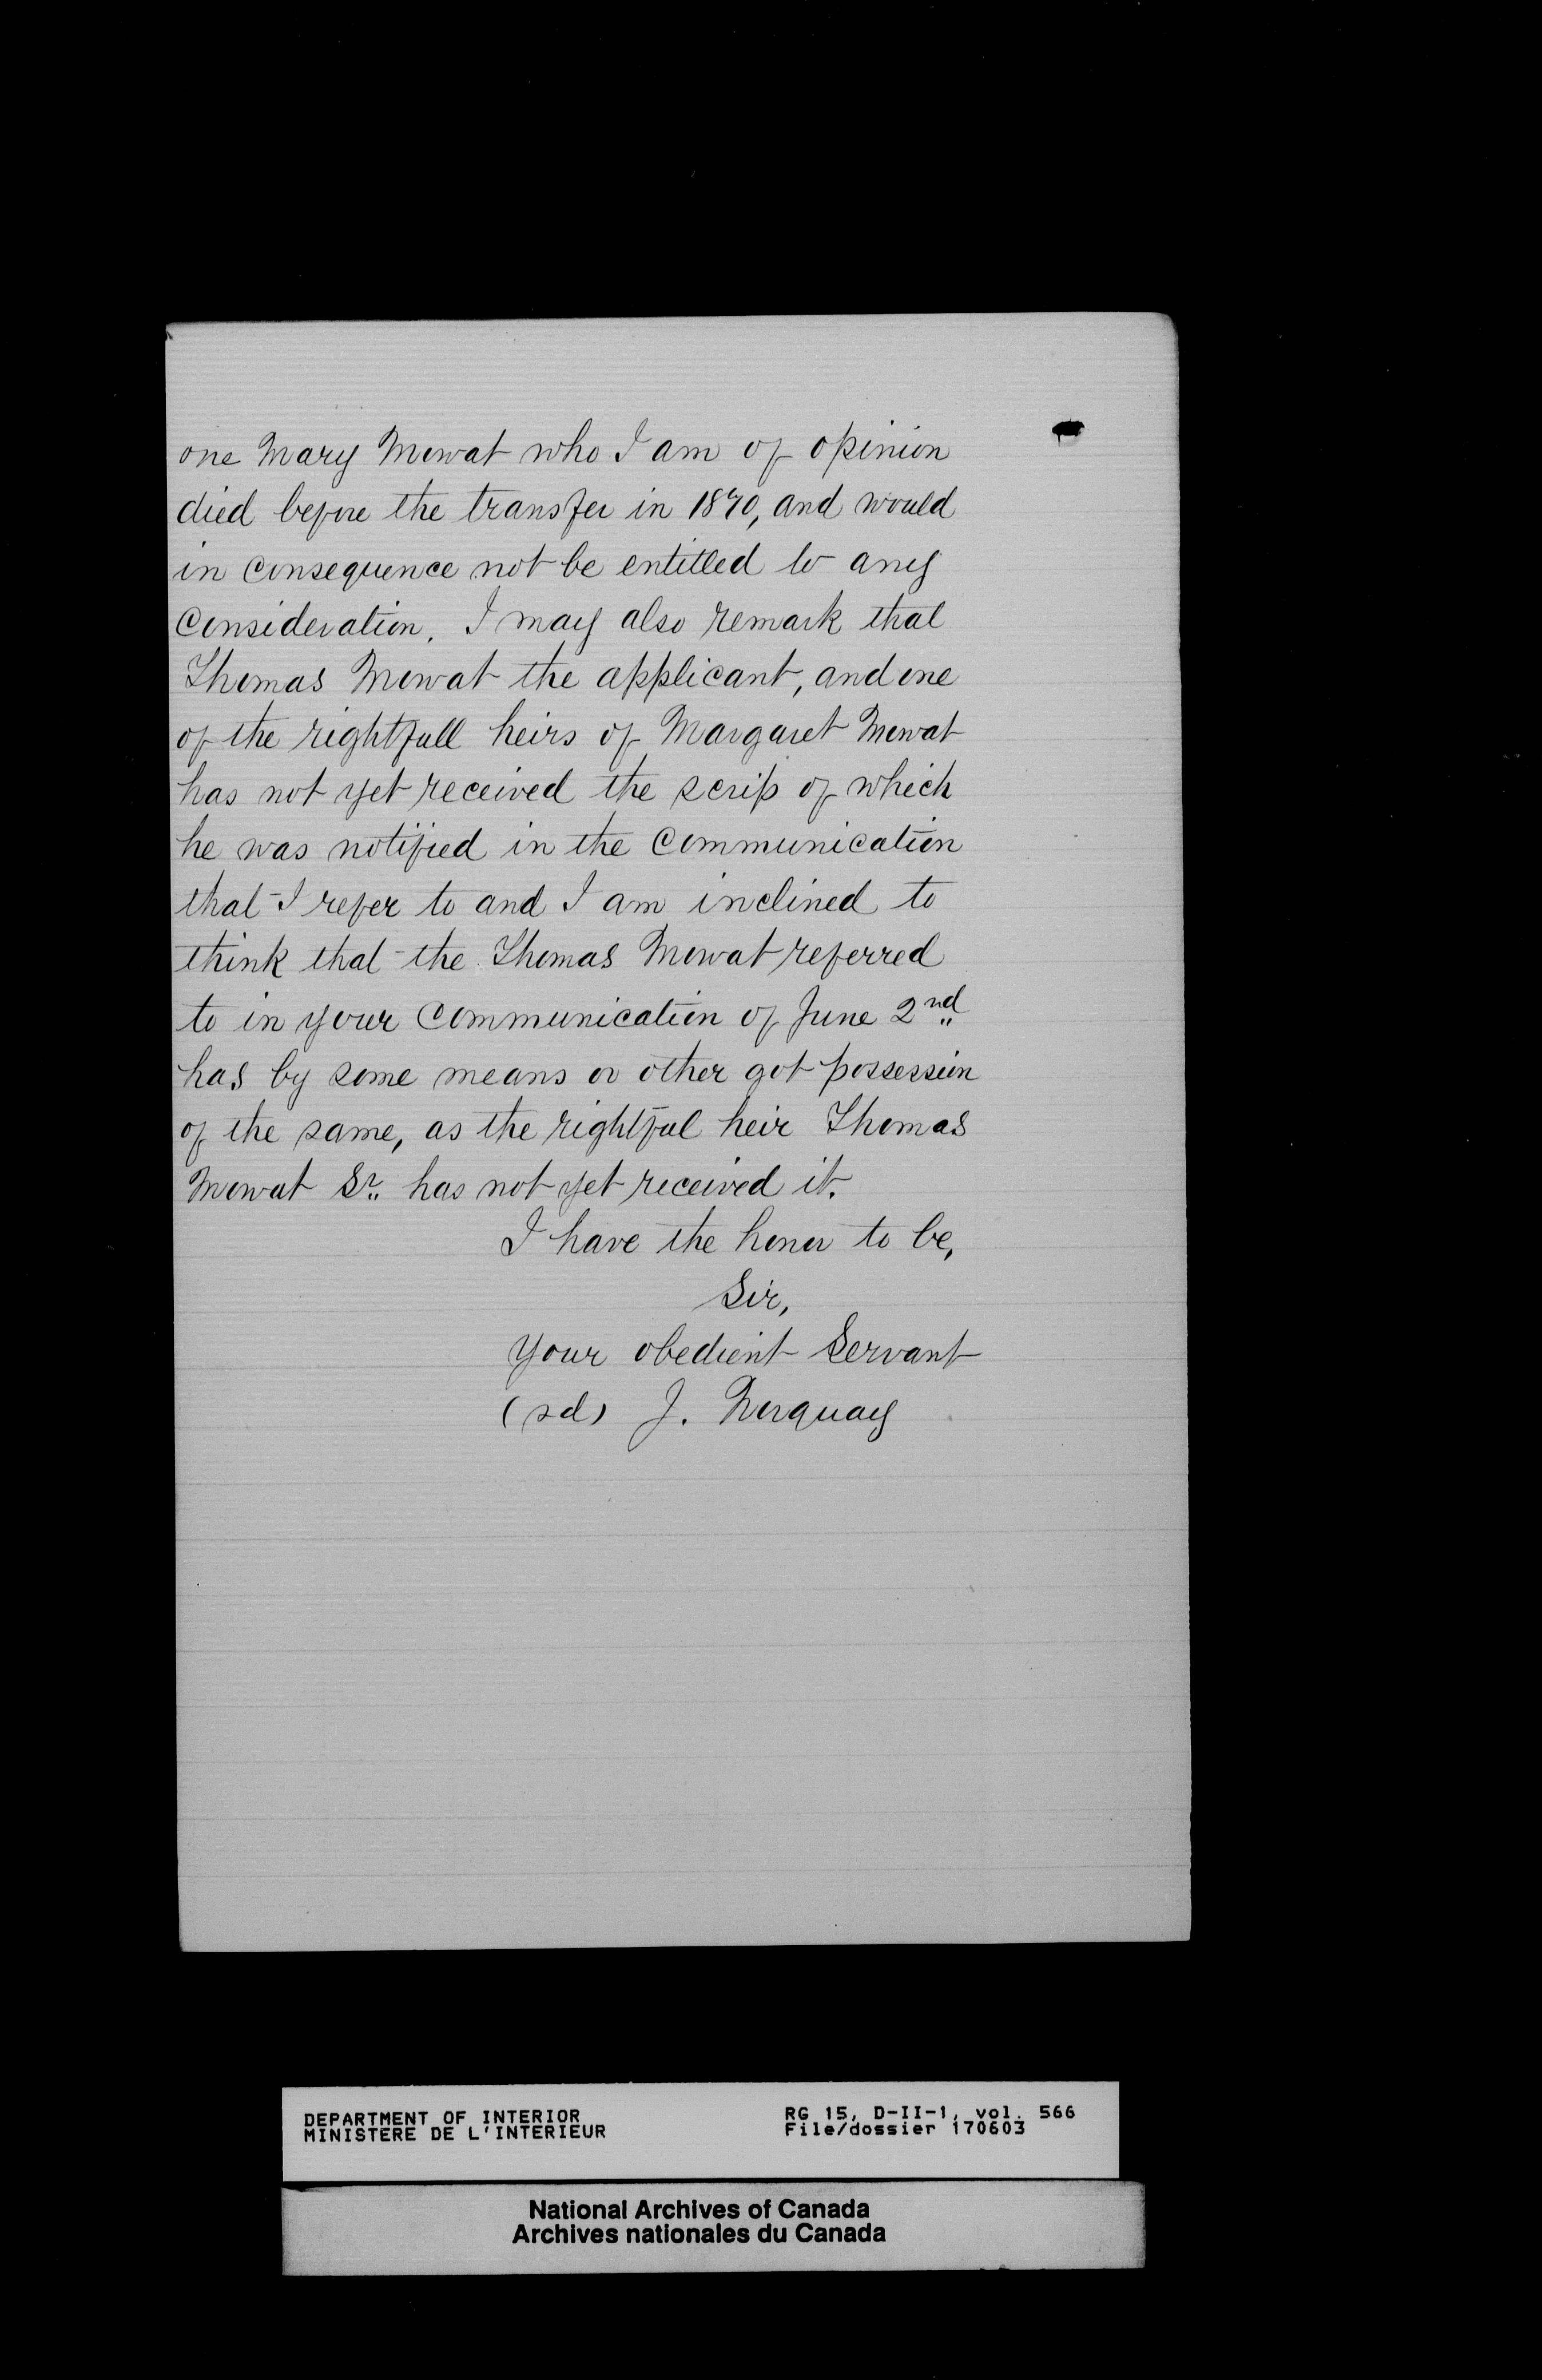 one Mary Mowat who I am of opinion
died before the transfer in 1870, and would
in consequence not be entitled to any
consideration. I may also remark that
Thomas Mowat the applicant, and one
of the rightfull heirs of Margaret Mowat
has not yet received the scrip of which
he was notified in the communication
that I refer to and I am inclined to
think that the Thomas Mowat referred
to in your communication of June 2nd
has by some means or other got possession
of the same, as the rightful heir Thomas
Mowat Sr. has not yet received it.
I have the honor to be,
Sir,
Your obedient Servant
(sd) J. Norquay
DEPARTMENT OF INTERIOR
MINISTERE DE L'INTERIEUR
RG 15, D-II-1, vol. 566
File/dossier 170603
National Archives of Canada
Archives nationales du Canada